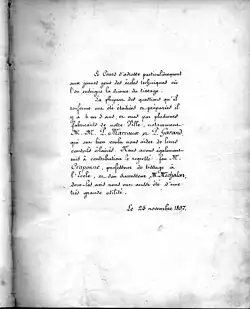 Ce Cours s'adresse particulièrement
aux jeunes gens des écoles techniques où
l'on enseigne la science du tissage.
La plupart des questions qu'il
renferme ont été étudiées et préparées il
y a 6 ou 8 ans, en
fabricants de notre Ville, notamment
M. M. L. Marcaux et L. Girard,
qui ont bien voulu nous aider de leurs
conseils éclairés. Nous avons également
mis à contribution le regretté feu M.
Craponne, professeur de tissage à
l'École, et son successeur M. Michalon,
dont les avis nous ont aussi été d'une
très grande utilité.
Le 25 novembre 1897.